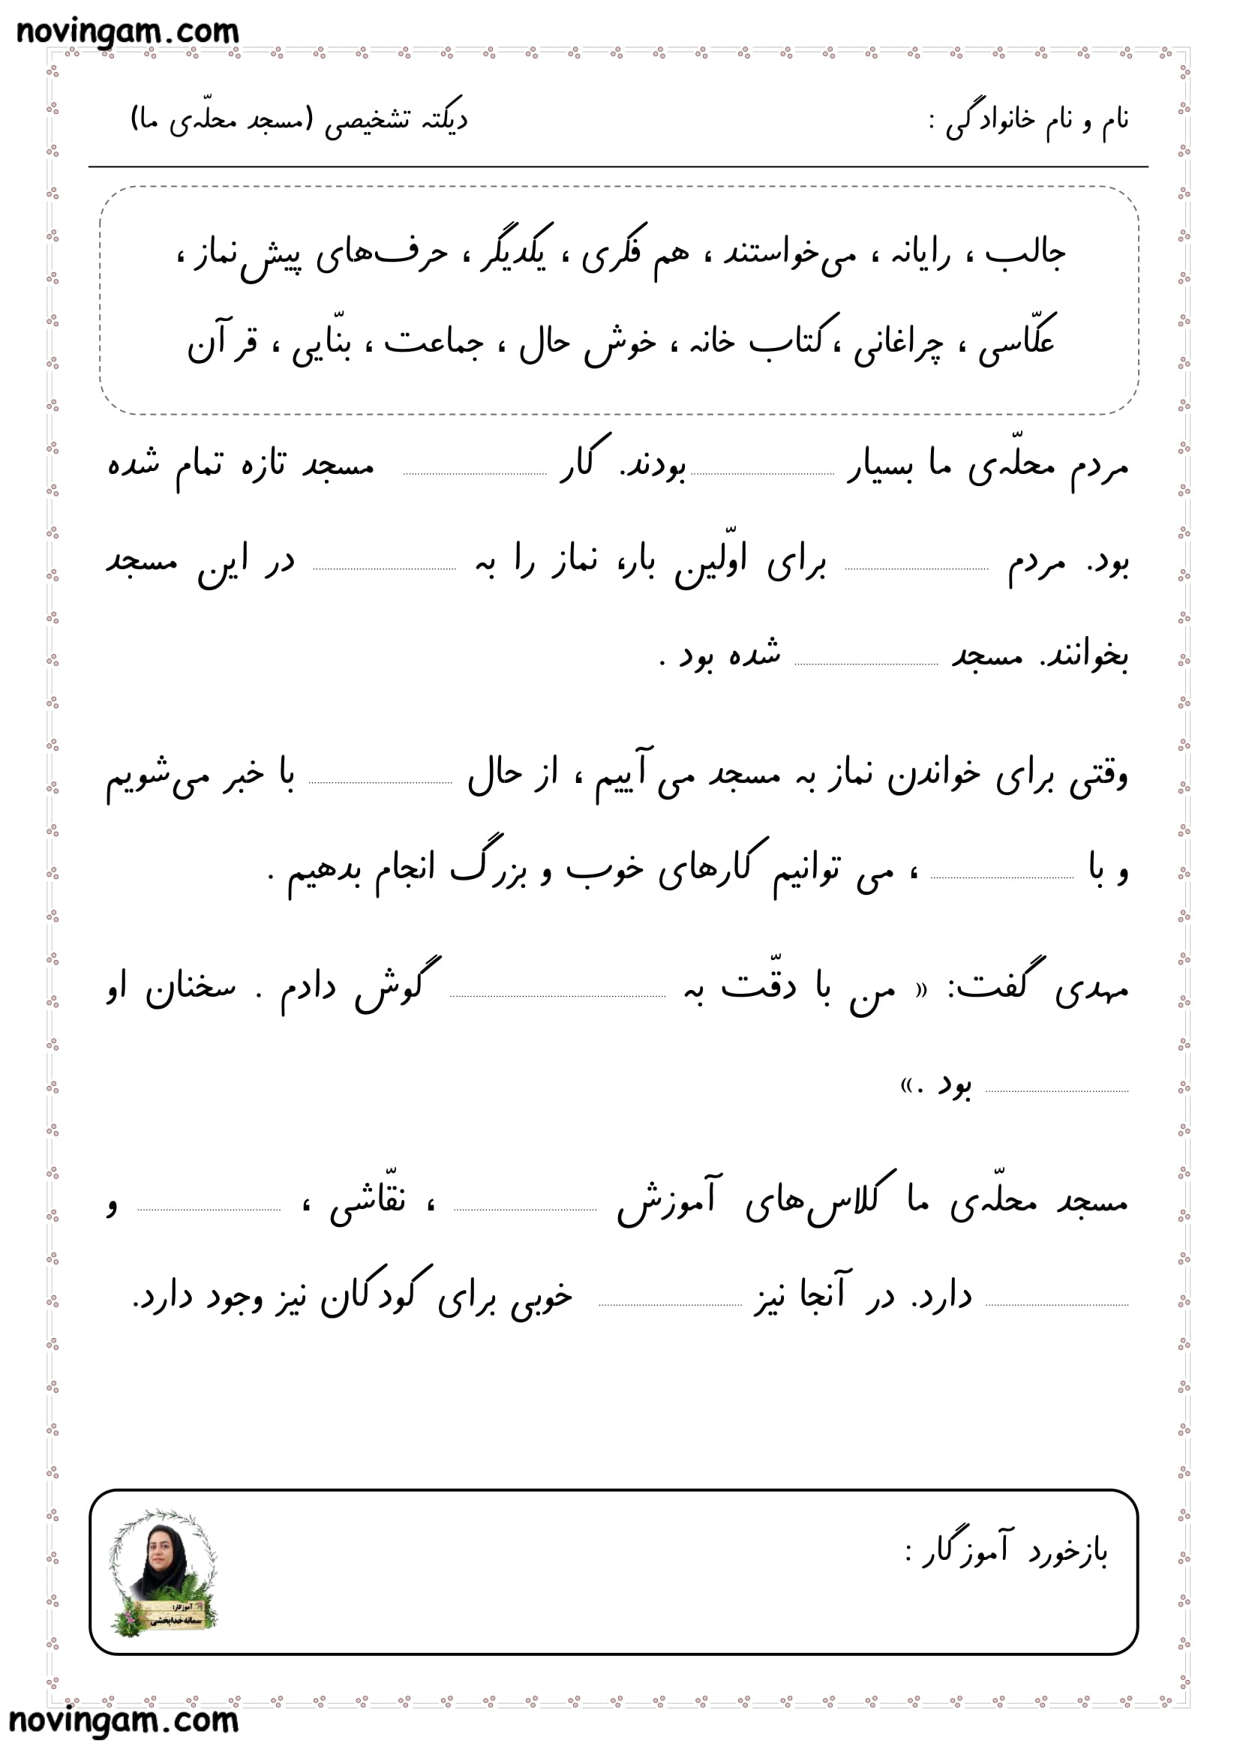 novingam.com
نام و نام خانوادگی :
دیکته تشخیصی (مسجد محلّه‌ی ما)
جالب ، رایانه ، می‌خواستند ، هم فکری ، یکدیگر ، حرف‌های پیش‌نماز ،
عکّاسی ، چراغانی ، کتاب خانه ، خوش حال ، جماعت ، بنّایی ، قرآن
مردم محلّه‌ی ما بسیار .................... بودند. کار .................... مسجد تازه تمام شده
بود. مردم .................... برای اوّلین بار، نماز را به .................... در این مسجد
بخوانند. مسجد .................... شده بود .
وقتی برای خواندن نماز به مسجد می آییم ، از حال .................... با خبر می‌شویم
و با .................... ، می توانیم کارهای خوب و بزرگ انجام بدهیم .
مهدی گفت: « من با دقّت به .............................. گوش دادم . سخنان او
.................... بود .»
مسجد محلّه‌ی ما کلاس‌های آموزش .................... ، نقّاشی ، .................... و
.................... دارد. در آنجا نیز .................... خوبی برای کودکان نیز وجود دارد.
بازخورد آموزگار :
آموزگار:
سمانه خدابخشی
novingam.com